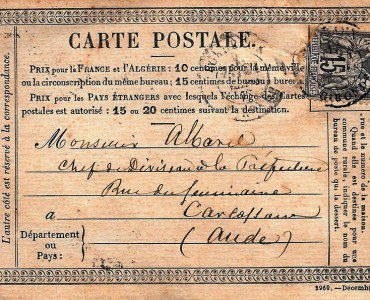 CARTE POSTALE.
PRIX pour la FRANCE et l'ALGÉRIE: 10 centimes pour la même ville
ou la circonscription du même bureau; 15 centimes de bureau à bureau.
PRIX pour les PAYS ÉTRANGERS avec lesquels l'échange des Cartes
postales est autorisé: 15 ou 20 centimes suivant la destination.
15
Monsieur Albarel
Chef de Division à la Préfecture
Rue du Séminaire
à Carcassonne
(Aude)
Département
ou
Pays:
L'autre côté est réservé à la correspondance.
rue et le numéro de la maison.
Quand elle est destinée pour une
commune rurale, indiquer le nom du
bureau de poste qui la dessert.